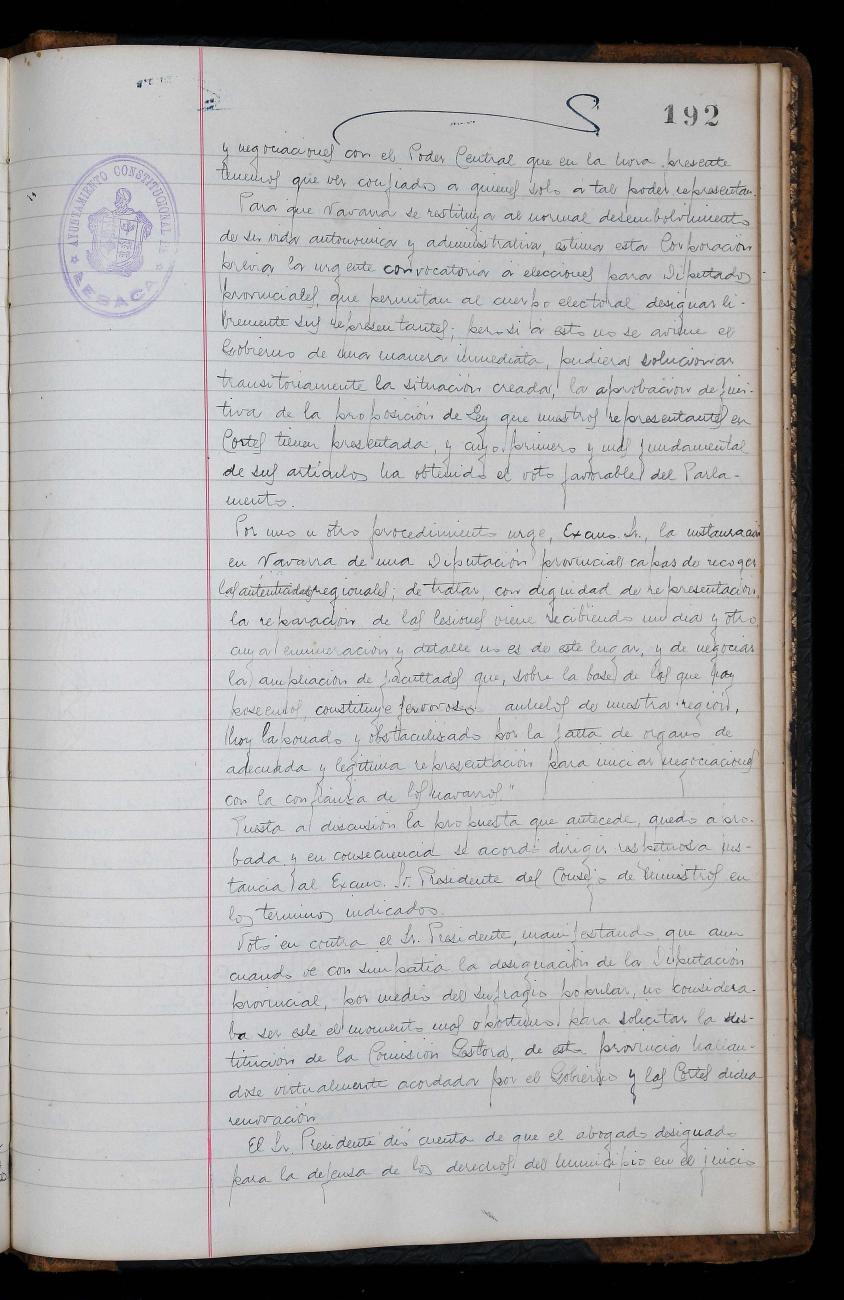 192
AYUNTAMIENTO CONSTITUCIONAL DE
AESACA
y negociaciones con el Poder Central que en la hora presente
tenemos que ver confiados a quienes solo a tal poder representan.
Para que Navarra se restituya al normal desembolvimiento
de su vida autonomica y administrativa, estima esta Corporación
previa la urgente convocatoria a elecciones para Diputados
provinciales que permitan al cuerpo electoral designar li-
bremente sus representantes; pero si a esto no se aviene el
Gobierno de una manera inmediata, pudiera solucionar
transitoriamente la situación creada, la aprobación defini-
tiva de la proposición de Ley que nuestros representantes en
Cortes tienen presentada, y cuyo primero y mas fundamental
de sus artículos ha obtenido el voto favorable del Parla-
mento.
Por uno u otro procedimiento urge, Excmo. Sr., la instauración
en Navarra de una Diputación provincial capas de recoger
las autenticidades regionales; de tratar, con dignidad de representación,
la reparación de las lesiones viene recibiendo un dia y otro,
cuya enumeración y detalle no es de este lugar, y de negociar
la ampliación de facultades que, sobre la base de las que hoy
poseemos, constituye fervorosos anhelos de nuestra región,
hoy laponado y obstaculisado por la falta de organo de
adecuada y legítima representación para iniciar negociaciones
con la confianza de los navarros"
Puesta a discusión la propuesta que antecede, quedo apro-
bada y en consecuencia se acordó dirigir respetuosa ins-
tancia al Excmo. Sr. Presidente del Consejo de Ministros en
los terminos indicados.
Votó en contra el Sr. Presidente, manifestando que aun
cuando ve con simpatía la designación de la Diputación
provincial, por medio del sufragio popular, no considera-
ba ser este el momento mas oportuno para solicitar la sus-
titución de la Comisión Gestora, de esta provincia hallan-
dose virtualmente acordada por el Gobierno y las Cortes dicha
renovación
El Sr. Presidente dió cuenta de que el abogado designado
para la defensa de los derechos del Municipio en el juicio